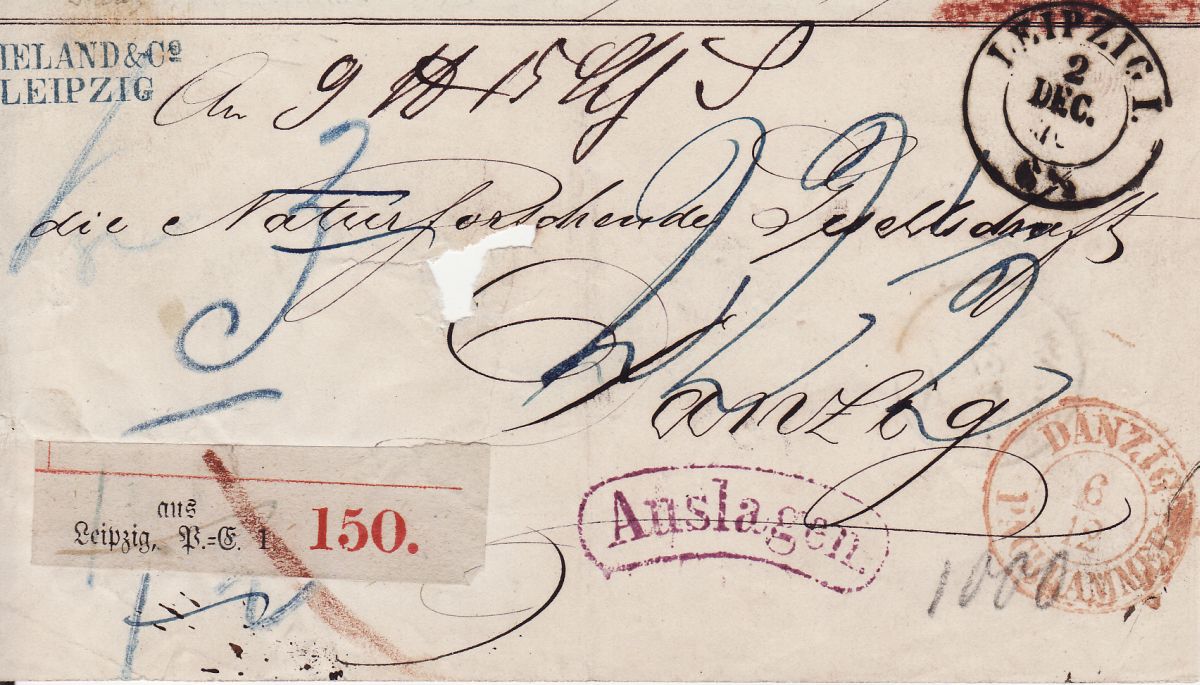 IELAND & Cº
LEIPZIG
LEIPZIG I.
2
DEC.
6
An
9
15
die Naturforschende Gesellschaft
Danzig
3
aus
Leipzig, P.=E. 1
150.
Auslagen.
DANZIG
6
12
1000